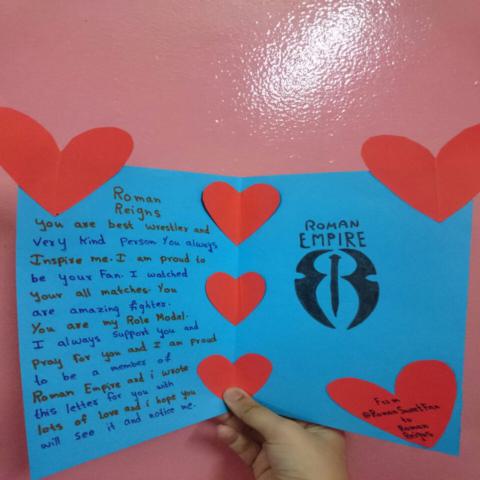 Roman
Reigns
You are best wrestler and
very kind person You always
Inspire me. I am proud to
be your Fan. I watched
your all matches. You
are amazing fighter.
You are my Role Model.
I always support you and
pray for you and I am proud
to be a member of
Roman Empire and i wrote
this letter for you with
lots of love and i hope you
will see it and notice me.
ROMAN
EMPIRE
From
@RomanSweetFan
to
Roman
Reigns